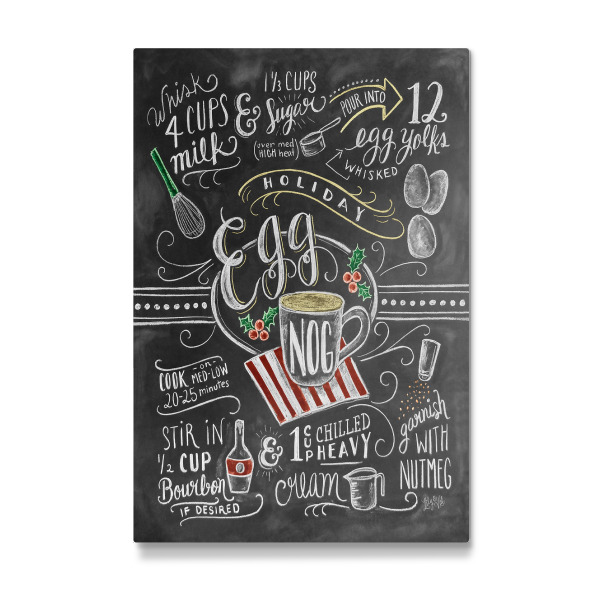 Whisk
4 CUPS
milk
&
1⅓ CUPS
Sugar
(over med
HIGH heat)
POUR INTO
12
egg yolks
WHISKED
HOLIDAY
Egg
NOG
COOK -on-
MED-LOW
20-25 minutes
STIR IN
½ CUP
Bourbon
IF DESIRED
&
1 CUP
CHILLED
HEAVY
cream
garnish
WITH
NUTMEG